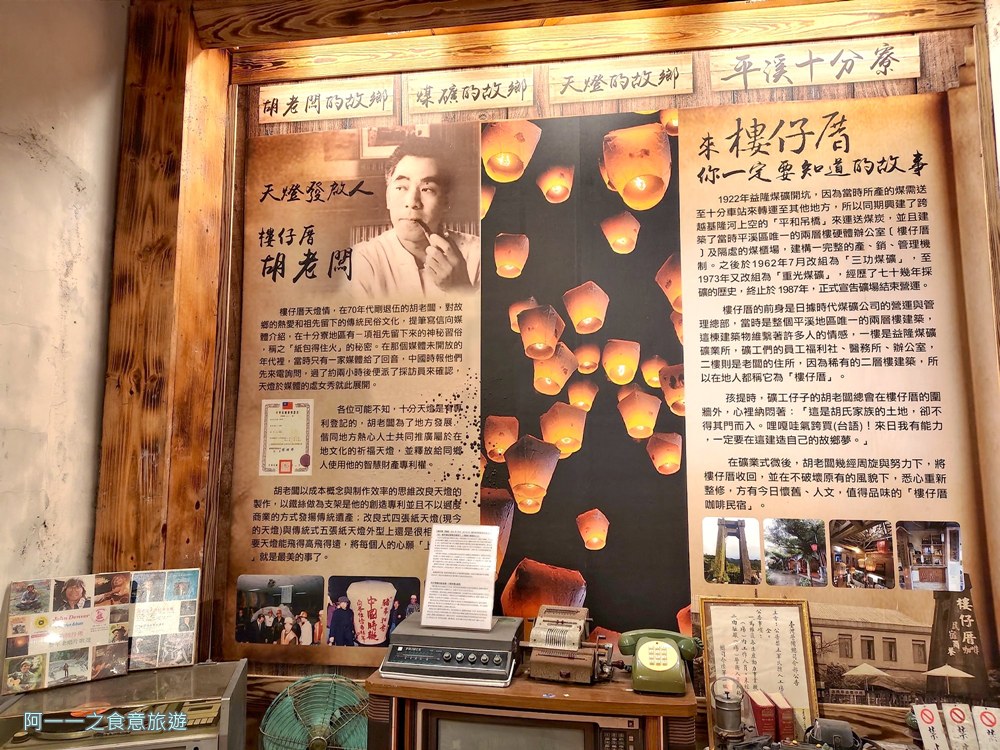 胡老闆的故鄉
煤礦的故鄉
天燈的故鄉
平溪十分寮
天燈發啟人
樓仔厝
胡老闆
樓仔厝天燈情，在70年代剛退伍的胡老闆，對故
鄉的熱愛和祖先留下的傳統民俗文化，提筆寫信向媒
體介紹，在十分寮地區有一項祖先留下來的神秘習俗
，稱之「紙包得住火」的秘密。在那個媒體未開放的
年代裡，當時只有一家媒體給了回音，中國時報他們
先來電詢問，過了約兩小時後便派了採訪員來確認，
天燈於媒體的處女秀就此展開。
各位可能不知，十分天燈是有專
利登記的，胡老闆為了地方發展，
偕同地方熱心人士共同推廣屬於在
地文化的祈福天燈，並釋放給同鄉
人使用他的智慧財產專利權。
胡老闆以成本概念與制作效率的思維改良天燈的
製作，以鐵絲做為支架是他的創造專利並且不以過度
商業的方式發揚傳統遺產；改良式四張紙天燈(現今
的天燈)與傳統式五張紙天燈外型上還是很相
要天燈能飛得高飛得遠，將每個人的心願「上
」就是最美的事了。
中國時報
來樓仔厝
你一定要知道的故事
1922年益隆煤礦開坑，因為當時所產的煤需送
至十分車站來轉運至其他地方，所以同期興建了跨
越基隆河上空的「平和吊橋」來運送煤炭，並且建
築了當時平溪區唯一的兩層樓硬體辦公室〔樓仔厝
〕及隔處的煤櫃場，建構一完整的產、銷、管理機
制。之後於1962年7月改組為「三功煤礦」，至
1973年又改組為「重光煤礦」，經歷了七十幾年採
礦的歷史，終止於1987年，正式宣告礦場結束營運。
樓仔厝的前身是日據時代煤礦公司的營運與管
理總部，當時是整個平溪地區唯一的兩層樓建築，
這棟建築物維繫著許多人的情感，一樓是益隆煤礦
礦業所，礦工們的員工福利社、醫務所、辦公室，
二樓則是老闆的住所，因為稀有的二層樓建築，所
以在地人都稱它為「樓仔厝」。
孩提時，礦工仔子的胡老闆總會在樓仔厝的圍
牆外，心裡納悶著：「這是胡氏家族的土地，卻不
得其門而入。哩嘎哇氣跨買(台語)！來日我有能力
，一定要在這建造自己的故鄉夢。」
在礦業式微後，胡老闆幾經周旋與努力下，將
樓仔厝收回，並在不破壞原有的風貌下，悉心重新
整修，方有今日懷舊、人文，值得品味的「樓仔厝
咖啡民宿」。
樓仔厝
John Denver
阿一一之食意旅遊